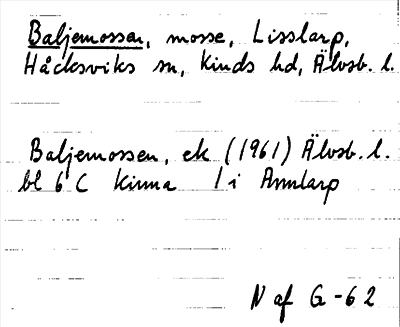 Baljemossen, mosse, Lisslarp,
Håcksviks sn, Kinds hd, Älvsb. l.
Baljemossen, ek (1961) Älvsb. l.
bl 6 C Kinna / i Annlarp
N af G-62